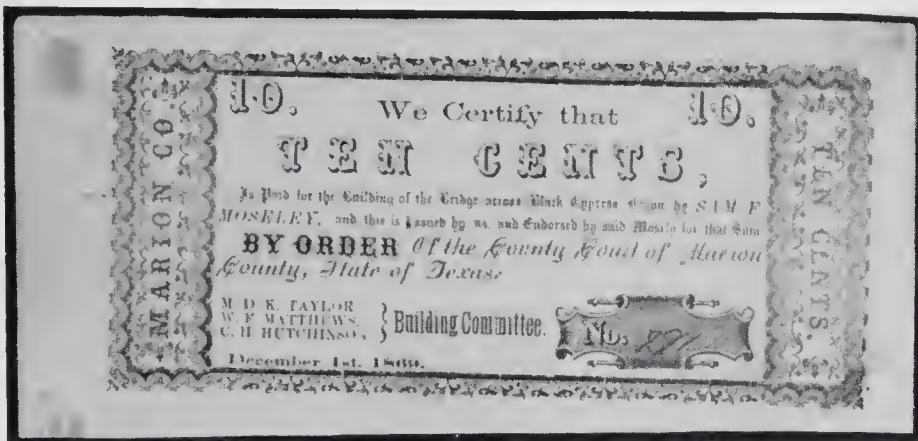 MARION CO.
10. We Certify that 10.
TEN CENTS,
Is Paid for the Building of the Bridge across Black Cypress by SAM F
MOSELEY, and this is Issued by us, and Endorsed by said Mosely for that Sum
BY ORDER Of the County Court of Marion
County, State of Texas.
M. D. K. TAYLOR
W. F. MATTHEWS.
C. H. HUTCHINSON,
} Building Committee.
No.
December 1st, 186
TEN CENTS.